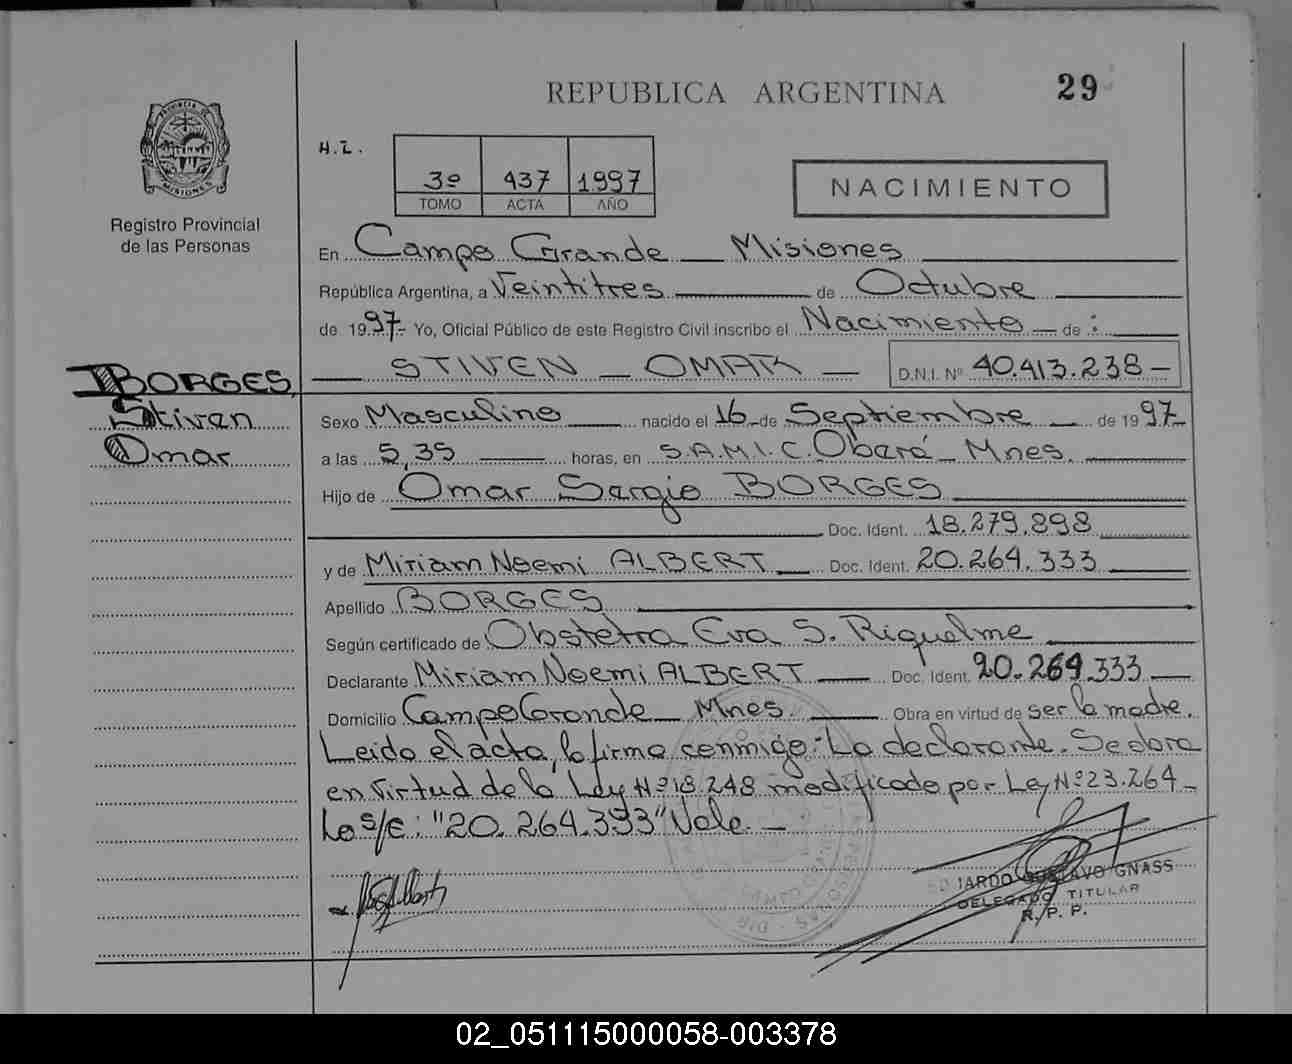 REPUBLICA ARGENTINA
29
PROVINCIA DE
MISIONES
Registro Provincial
de las Personas
H.I.
3º 437 1997
TOMO ACTA AÑO
NACIMIENTO
En Campo Grande Misiones
República Argentina, a Veintitres de Octubre
de 1997- Yo, Oficial Público de este Registro Civil inscribo el Nacimiento de :
STIVEN OMAR D.N.I. Nº 40.413.238-
BORGES,
Stiven
Omar
Sexo Masculino nacido el 16 de Septiembre de 1997-
a las 5,35 horas, en S.A.M.I.C. Oberá - Mnes.
Hijo de Omar Sergio BORGES
Doc. Ident. 18.279.898
y de Miriam Noemi ALBERT Doc. Ident. 20.264.333
Apellido BORGES
Según certificado de Obstetra Eva S. Riquelme
Declarante Miriam Noemi ALBERT Doc. Ident. 20.264.333
Domicilio Campo Grande Mnes Obra en virtud de ser la madre.
Leída el acta, la firma conmigo:- La declarante. Se obra
en Virtud de la Ley Nº 18.248 modificada por Ley Nº 23.264-
Lo s/e: "20.264.333" Vale.-
GUSTAVO GNASS
DELEGADO TITULAR
R. P. P.
02_051115000058-003378